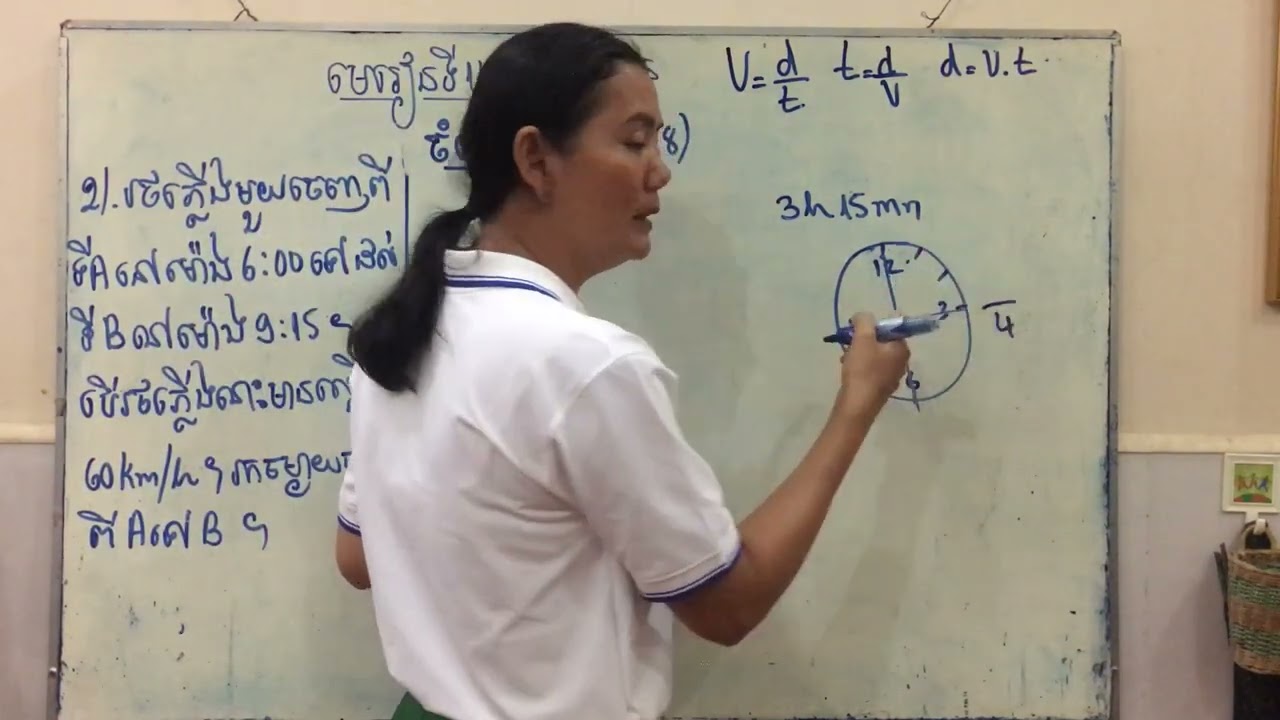 មេរៀនទី
V = d/t t = d/V d = V.t
8)
2/. រថភ្លើងមួយចេញពី
ទី A នៅម៉ោង 6:00 ទៅដល់
ទី B នៅម៉ោង 9:15 ។
បើរថភ្លើងនោះមាន
60km/h ។ រកចម្ងាយ
ពី A ទៅ B ។
3h 15mn
12
3
6
4